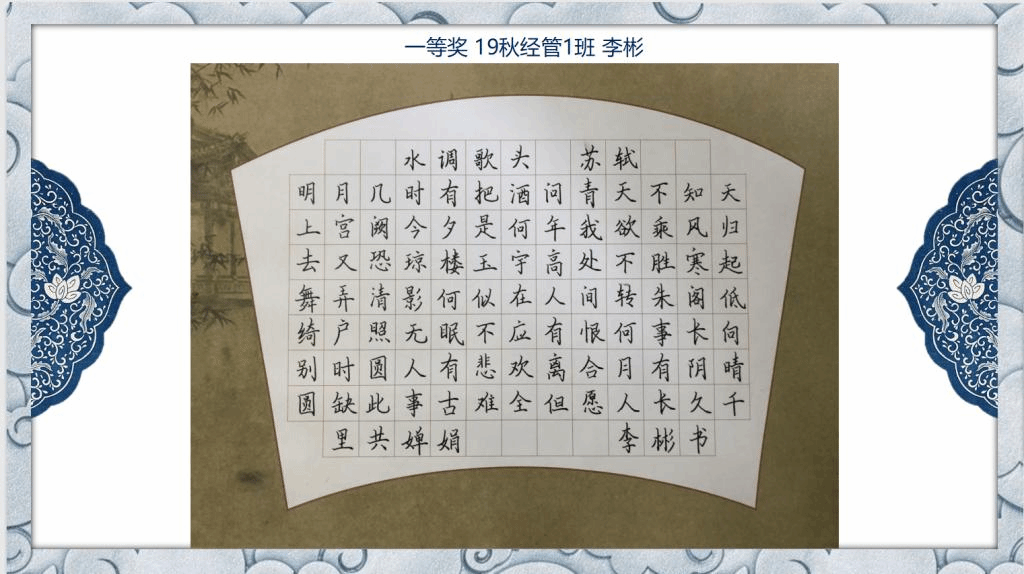 一等奖 19秋经管1班 李彬
水调歌头 苏轼
明月几时有把酒问青天不知天
上宫阙今夕是何年我欲乘风归
去又恐琼楼玉宇高处不胜寒起
舞弄清影何似在人间转朱阁低
绮户照无眠不应有恨何事长向
别时圆人有悲欢离合月有阴晴
圆缺此事古难全但愿人长久千
里共婵娟 李彬书